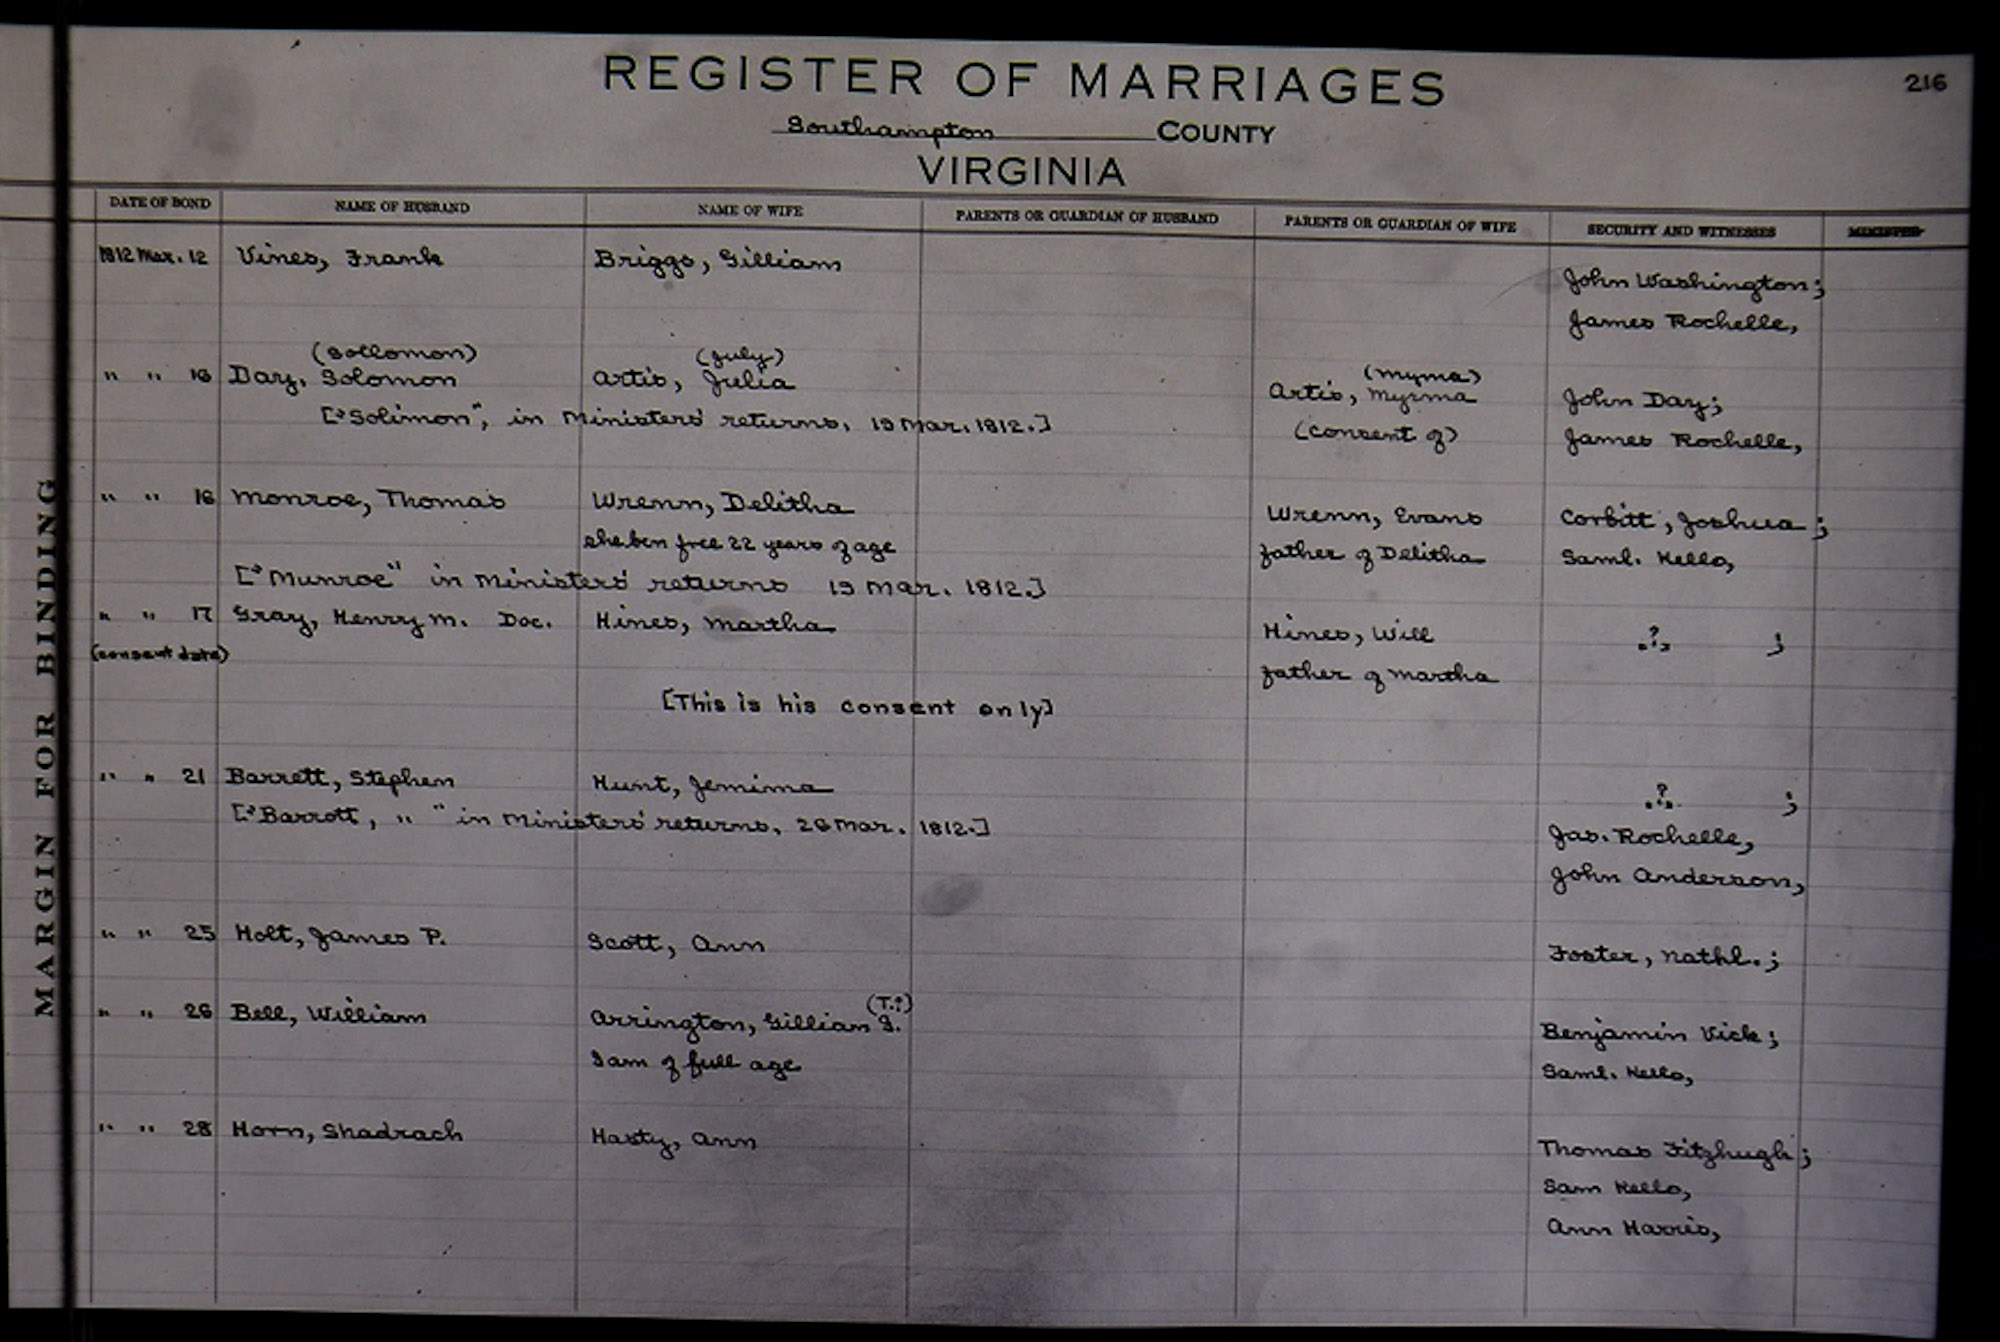 216
REGISTER OF MARRIAGES
Southampton COUNTY
VIRGINIA
MARGIN FOR BINDING
DATE OF BOND NAME OF HUSBAND NAME OF WIFE PARENTS OR GUARDIAN OF HUSBAND PARENTS OR GUARDIAN OF WIFE SECURITY AND WITNESSES MINISTER
1812 Mar. 12 Vines, Frank Briggs, Gilliam
John Washington;
James Rochelle,
(Sollomon) (July) (Myma)
" " 16 Day, Solomon Artis, Julia Artis, Myrma John Day;
["Solimon", in Ministers' returns, 19 Mar. 1812.] (consent of) James Rochelle,
" " 16 Monroe, Thomas Wrenn, Delitha Wrenn, Evans Corbitt, Joshua;
she ben free 22 years of age father of Delitha Saml. Kello,
["Munroe" in Ministers' returns 19 Mar. 1812.]
" " 17 Gray, Henry M. Doc. Hines, Martha Hines, Will ? ;
(consent date) father of Martha
[This is his consent only]
" " 21 Barrett, Stephen Hunt, Jemima ? ;
["Barrott, " " in Ministers' returns, 26 Mar. 1812.] Jas. Rochelle,
John Anderson,
" " 25 Holt, James P. Scott, Ann Foster, Nathl.;
(T.?)
" " 26 Bell, William Arrington, Gillian I. Benjamin Vick;
I am of full age Saml. Kello,
" " 28 Horn, Shadrach Hasty, Ann Thomas Fitzhugh;
Sam Kello,
Ann Harris,